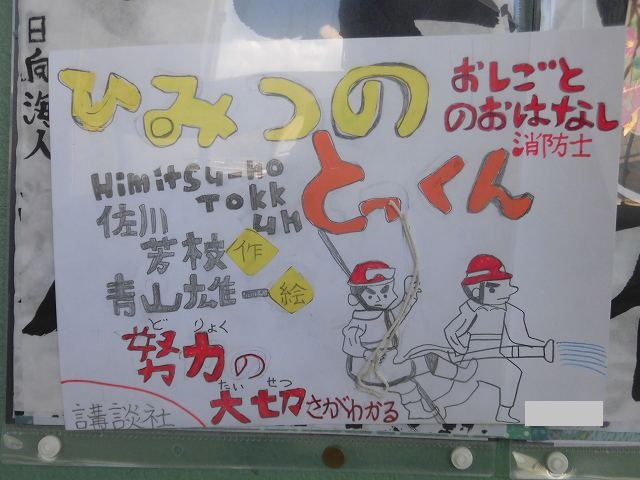 日向海人
ひみつの
とっくん
おしごと
のおはなし
消防士
Himitsu-no
Tokk
un
佐川
芳枝 作
青山雄一 絵
どりょく
努力の
たいせつ
大切さがわかる
講談社